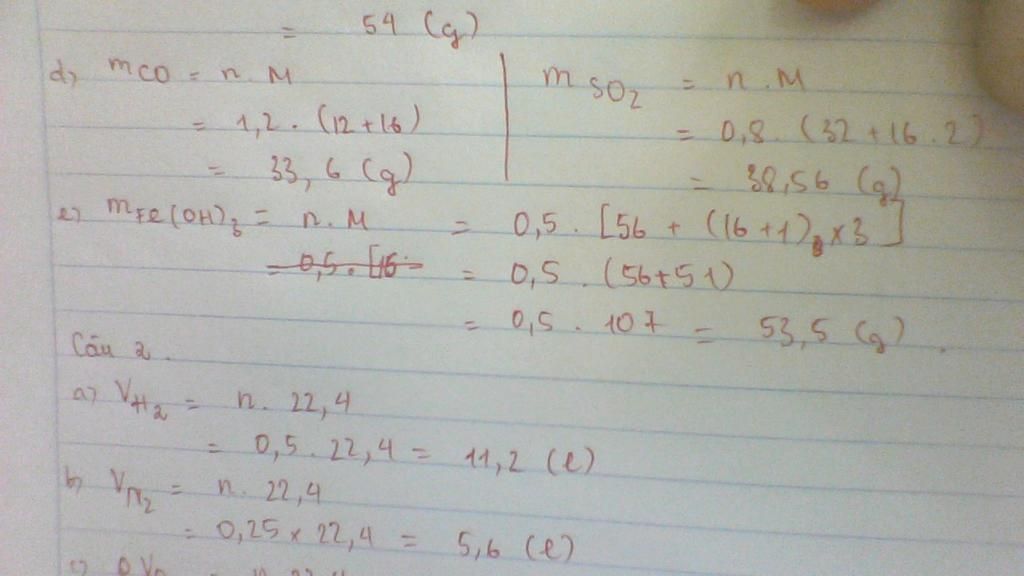 = 54 (g)
d) mCO = n . M
= 1,2 . (12+16)
= 33,6 (g)
mSO₂ = n . M
= 0,8 . (32 + 16 . 2)
= 38,56 (g)
e) mFe(OH)₃ = n . M = 0,5 . [56 + (16+1) × 3]
= 0,5 . [16 = 0,5 . (56+51)
= 0,5 . 107 = 53,5 (g) .
Câu 2 .
a) VH₂ = n . 22,4
= 0,5 . 22,4 = 11,2 (l)
b) VN₂ = n . 22,4
= 0,25 × 22,4 = 5,6 (l)
c)